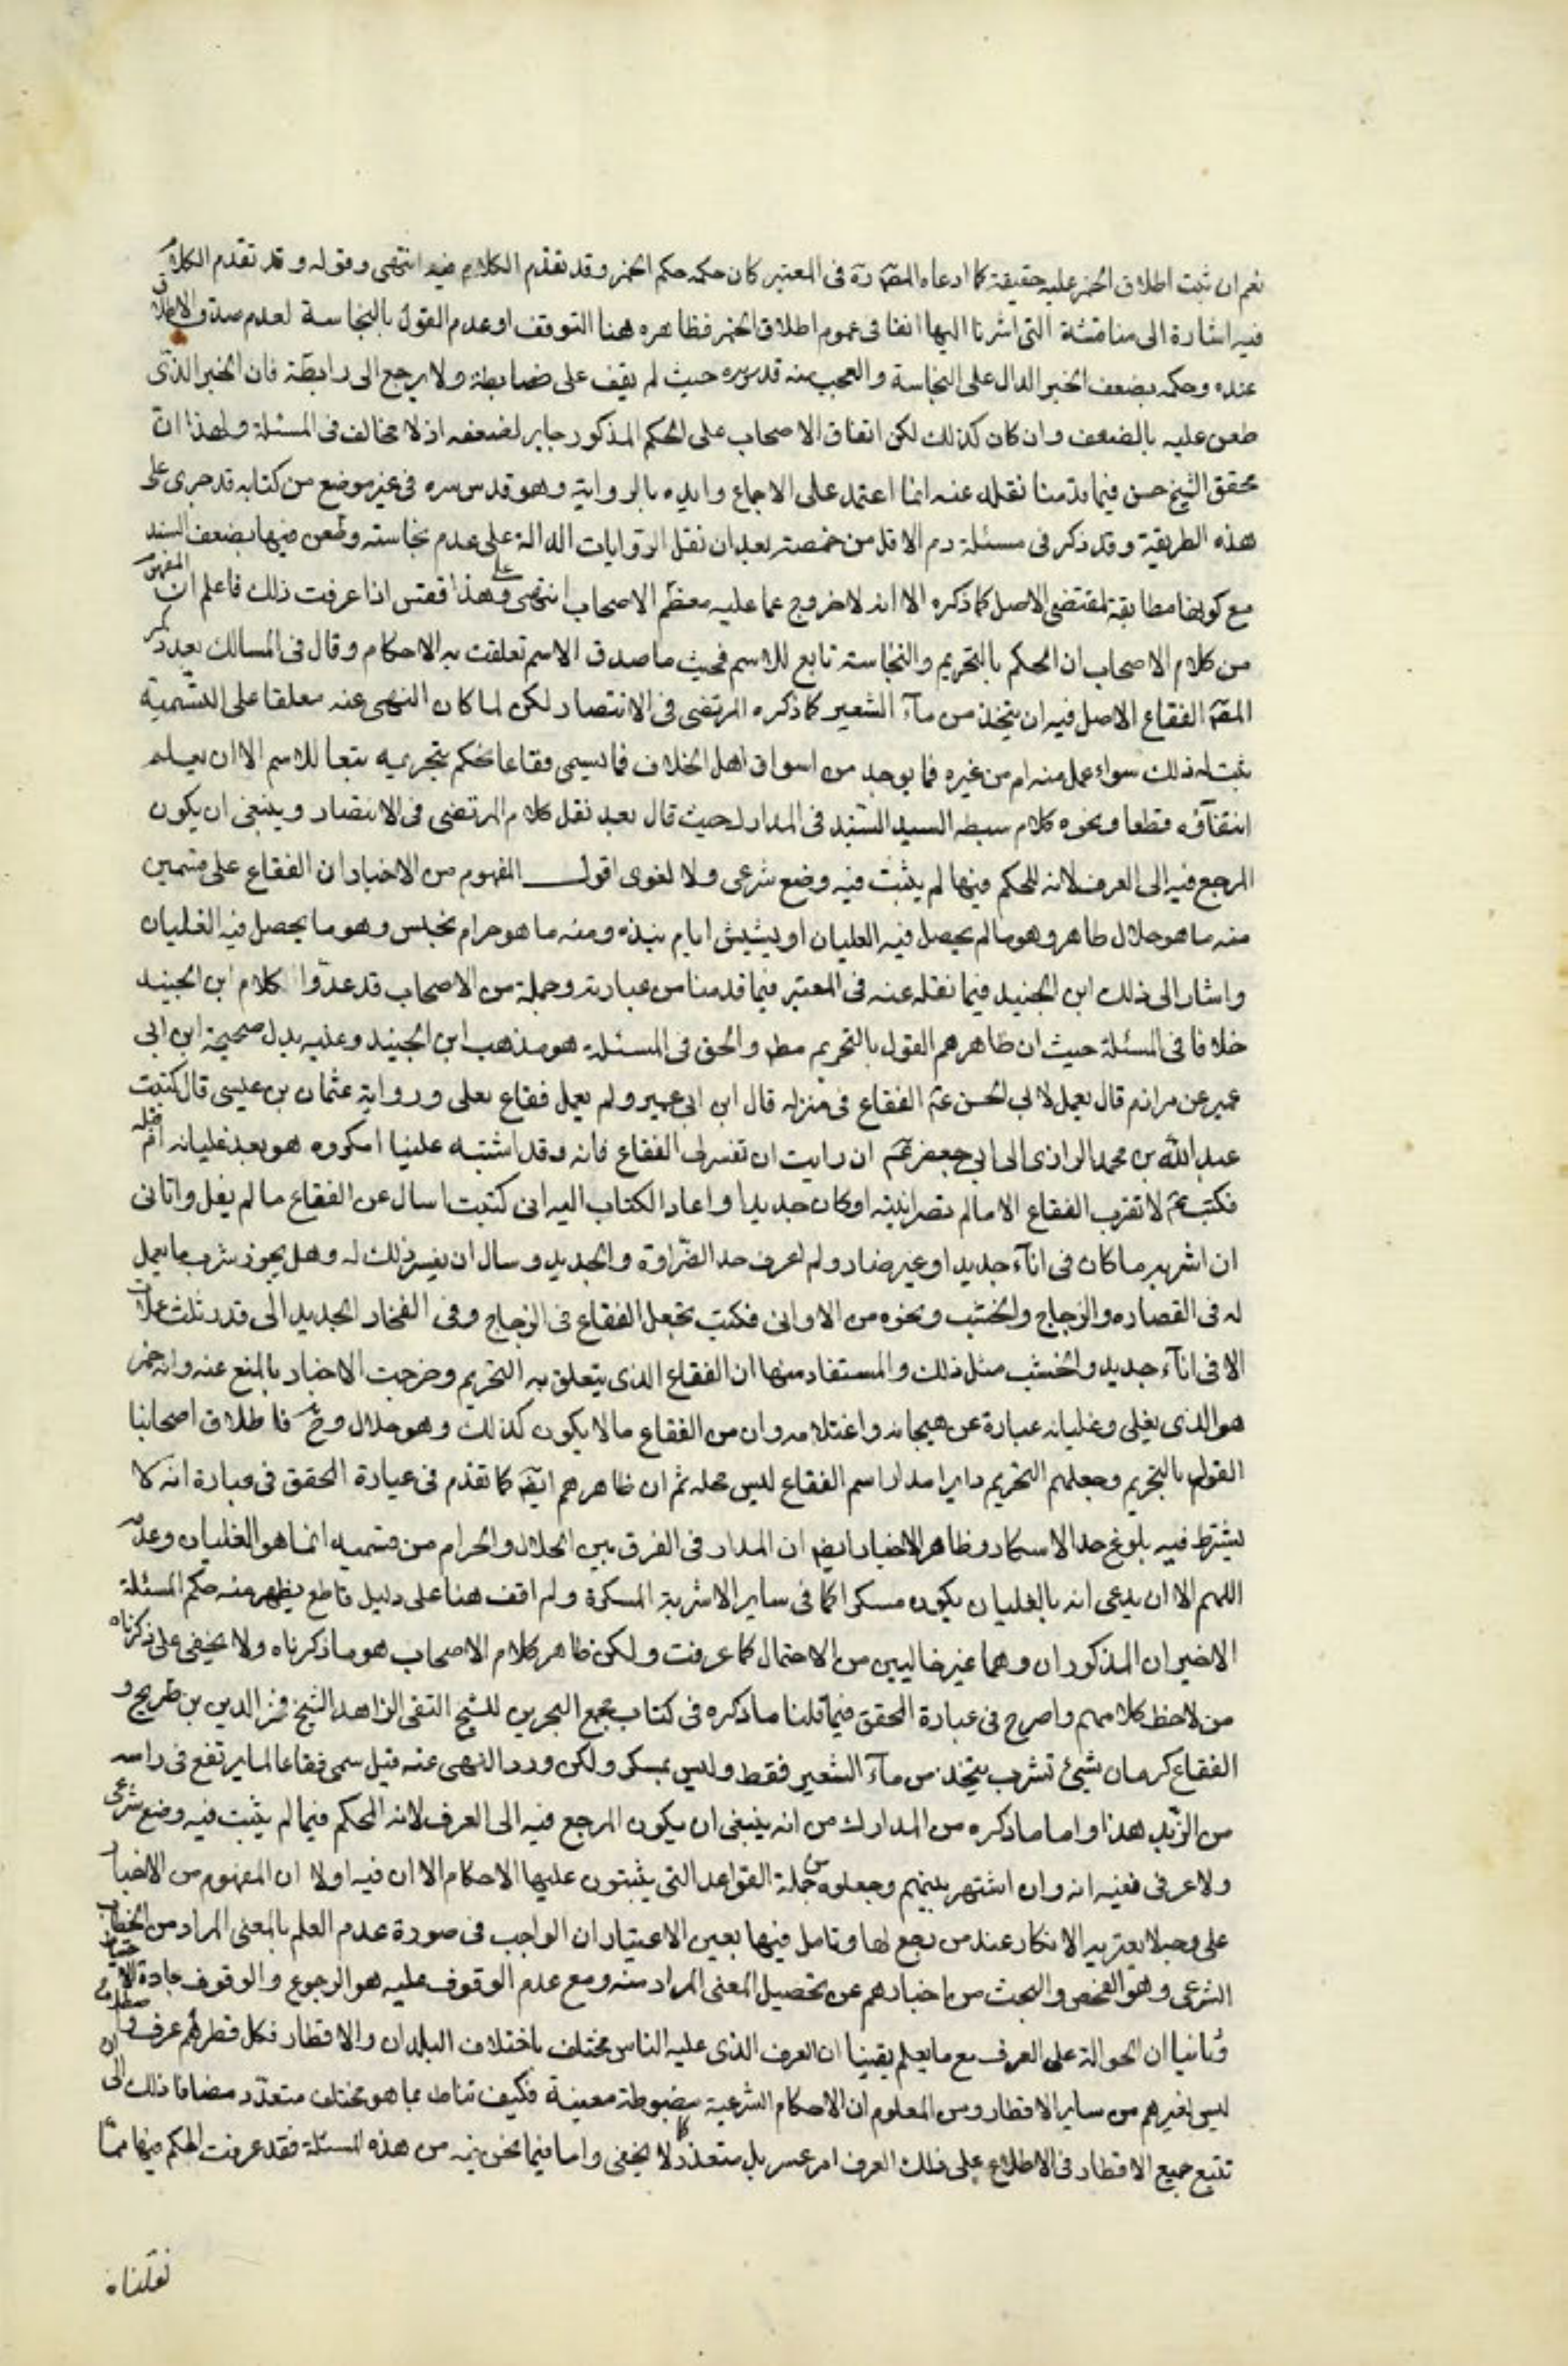 نعم ان ثبت اطلاق الخمر عليه حقيقة كما ادعاه المصَ ره فى المعتبر كان حكمه حكم الخمر وقد تقدم الكلام فيه انتهى وقوله وقد تقدم الكلام
فيه اشارة الى مناقشة التى اشرنا اليها انفا فى عموم اطلاق الخمر فظاهره هنا التوقف او عدم القول بالنجاسة لعدم صدق الاطلاق
عنده وحكمه بضعف الخبر الدال على النجاسة والعجب منه قدس سره حيث لم يقف على ضابطة ولا يرجع الى رابطة فان الخبر الذى
طعن عليه بالضعف وان كان كذلك لكن اتفاق الاصحاب على الحكم المذكور جابر لضعفه اذ لا مخالف فى المسئلة ولهذا ان
محقق الشيخ حسن فيما قدمنا نقله عنه انما اعتمد على الاجماع وايده بالرواية وهو قدس سره فى غير موضع من كتابه قد جرى على
هذه الطريقة وقد ذكر فى مسئلة دم الاقل من حمصة بعد ان نقل الروايات الدالة على عدم نجاسته وطعن فيها بضعف السند
مع كونها مطابقة لمقتضى الاصل كما ذكره الا انه لا خروج عما عليه معظم الاصحاب انتهى وعلى هذا فقس اذا عرفت ذلك فاعلم ان المفهوم
من كلام الاصحاب ان الحكم بالتحريم والنجاسة تابع للاسم فحيث ما صدق الاسم تعلقت به الاحكام وقال فى المسالك بعد ذكر
المصَ الفقاع الاصل فيه ان يتخذ من مآء الشعير كما ذكره المرتضى فى الانتصار لكن لما كان النهى عنه معلقا على التسمية
ثبت له ذلك سواء عمل منه ام من غيره فما يوجد من اسواق اهل الخلاف فما يسمى فقاعا نحكم بتحريمه تبعا للاسم الا ان يعلم
انتفآؤه قطعا ونحوه كلام سبطه السيد السند فى المدارك حيث قال بعد نقل كلام المرتضى فى الانتصار وينبغى ان يكون
المرجع فيه الى العرف لانه المحكم فيها لم يثبت فيه وضع شرعى ولا لغوى اقول المفهوم من الاخبار ان الفقاع على قسمين
منه ما هو حلال طاهر وهو ما لم يحصل فيه الغليان او ينشيش ايام نبذه ومنه ما هو حرام نجس وهو ما يحصل فيه الغليان
واشار الى ذلك ابن الجنيد فيما نقله عنه فى المعتبر فيما قدمنا من عبارته وجملة من الاصحاب قد عدّوا كلام ابن الجنيد
خلافا فى المسئلة حيث ان ظاهرهم القول بالتحريم مط والحق فى المسئلة هو مذهب ابن الجنيد وعليه يدل صحيحة ابن ابى
عمير عن مرازم قال يعمل لابى الحسن عم الفقاع فى منزله قال ابن ابى عمير ولم يعمل فقاع يغلى ورواية عثمان بن عيسى قال كتبت
عبد الله بن محمد الرازى الى ابى جعفر عم ان رايت ان تفسر لى الفقاع فانه قد اشتبه علينا امكروه هو بعد غليانه ام قبله
فكتب عم لا تقرب الفقاع الا ما لم تضر انيته او كان جديدا واعاد الكتاب اليه انى كتبت اسال عن الفقاع ما لم يغل واتانى
ان اشربه ما كان فى انآء جديد او غير ضار ولم اعرف حد الضراوة والجديد وسال ان يفسر ذلك له وهل يجوز شرب ما يعمل
له فى الغضاره والزجاج والخشب ونحوه من الاوانى فكتب تجعل الفقاع فى الزجاج وفى الفخار الجديد الى قدر ثلث عملات
الا فى انآء جديد والخشب مثل ذلك والمستفاد منها ان الفقاع الذى يتعلق به التحريم وخرجت الاخبار بالمنع عنه وانه خمر
هو الذى يغلى وغليانه عبارة عن هيجانه واغتلامه وان من الفقاع ما لا يكون كذلك وهو حلال وح فاطلاق اصحابنا
القول بالتحريم وجعلهم التحريم دايرا مدار اسم الفقاع ليس محله ثم ان ظاهرهم ايضَ كما تقدم فى عبارة المحقق فى عبارة انه لا
يشترط فيه بلوغ حد الاسكار وظاهر الاخبار ايضَ ان المدار فى الفرق بين الحلال والحرام من قسميه انما هو الغليان وعدمه
اللهم الا ان يدعى انه بالغليان يكون مسكرا كما فى ساير الاشربة المسكرة ولم اقف هنا على دليل قاطع يظهر منه حكم المسئلة
الاخيران المذكوران وهما غير خاليين من الاحتمال كما عرفت ولكن ظاهر كلام الاصحاب هو ما ذكرناه ولا يخفى على ذكرناه
من لاحظ كلامهم واصرح فى عبارة المحقق فيما قلنا ما ذكره فى كتاب مجمع البحرين للشيخ التقى الزاهد الشيخ فخر الدين بن طريح و
الفقاع كرمان شىئ تشرب يتخذ من مآء الشعير فقط وليس بمسكر ولكن ورد النهى عنه قيل سمى فقاعا لما يرتفع فى راسه
من الزبد هذا واما ما ذكره من المدارك من انه ينبغى ان يكون المرجع فيه الى العرف لانه المحكم فيما لم يثبت فيه وضع شرعى
ولا عرفى ففيه انه وان اشتهر بينهم وجعلوه من جملة القواعد التى يثبتون عليها الاحكام الا ان فيه اولا ان المفهوم من الاخبار
على وجه لا يعتريه الانكار عند من رجع لها وتامل فيها بعين الاعتبار ان الواجب فى صورة عدم العلم بالمعنى المراد من الخطاب
الشرعى وهو الفحص والبحث من اخبارهم عن تحصيل المعنى المراد منه ومع عدم الوقوف عليه هو الرجوع والوقوف جادة الاحتياط
وثانيا ان الحوالة على العرف مع ما يعلم يقينا ان العرف الذى عليه الناس مختلف باختلاف البلدان والاقطار فكل قطر لهم عرف و
ليس لغيرهم من ساير الاقطار ومن المعلوم ان الاحكام الشرعية مضبوطة معينة فكيف تناط بما هو مختلف متعدد مضافا ذلك الى ان
تتبع جميع الاقطار فى الاطلاع على ذلك العرف امر عسر بل متعذر كما لا يخفى واما فيما نحن فيه من هذه المسئلة فقد عرفت الحكم فيها مما
نقلناه